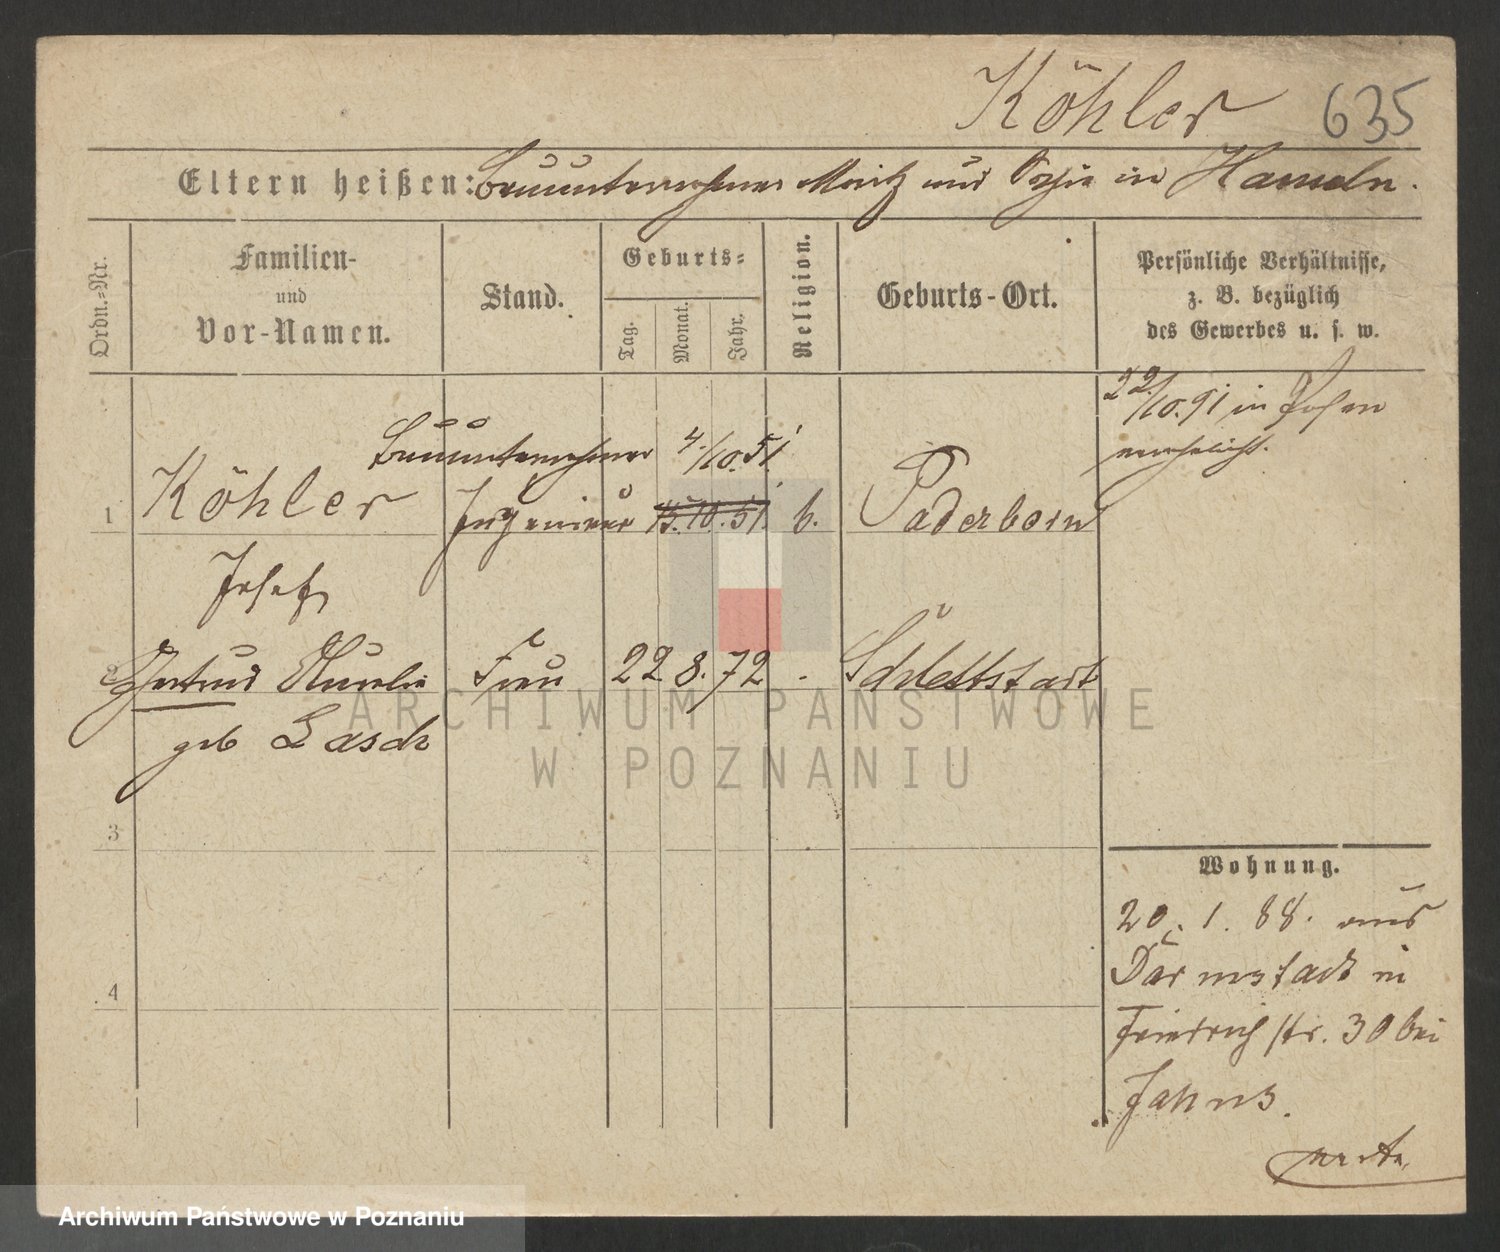 Köhler 635
Eltern heißen: Bauunternehmer Moritz und Sophie in Hameln.
Ordn.-Nr.
Familien-
und
Vor-Namen.
Stand.
Geburts-
Tag. Monat. Jahr.
Religion.
Geburts-Ort.
Persönliche Verhältnisse,
z. B. bezüglich
des Gewerbes u. s. w.
22/10.91 in Posen
verehelicht.
Bauunternehmer 4./10.51
1 Köhler Ingenieur 15.10.51. k. Paderborn
Josef
2 Gertrud Aurelie Frau 22 8. 72 Schlettstadt
geb Lasch
3
4
Wohnung.
20. 1. 88. aus
Darmstadt in
Friedrichstr. 30 bei
Jahns.
ARCHIWUM PAŃSTWOWE
W POZNANIU
Archiwum Państwowe w Poznaniu